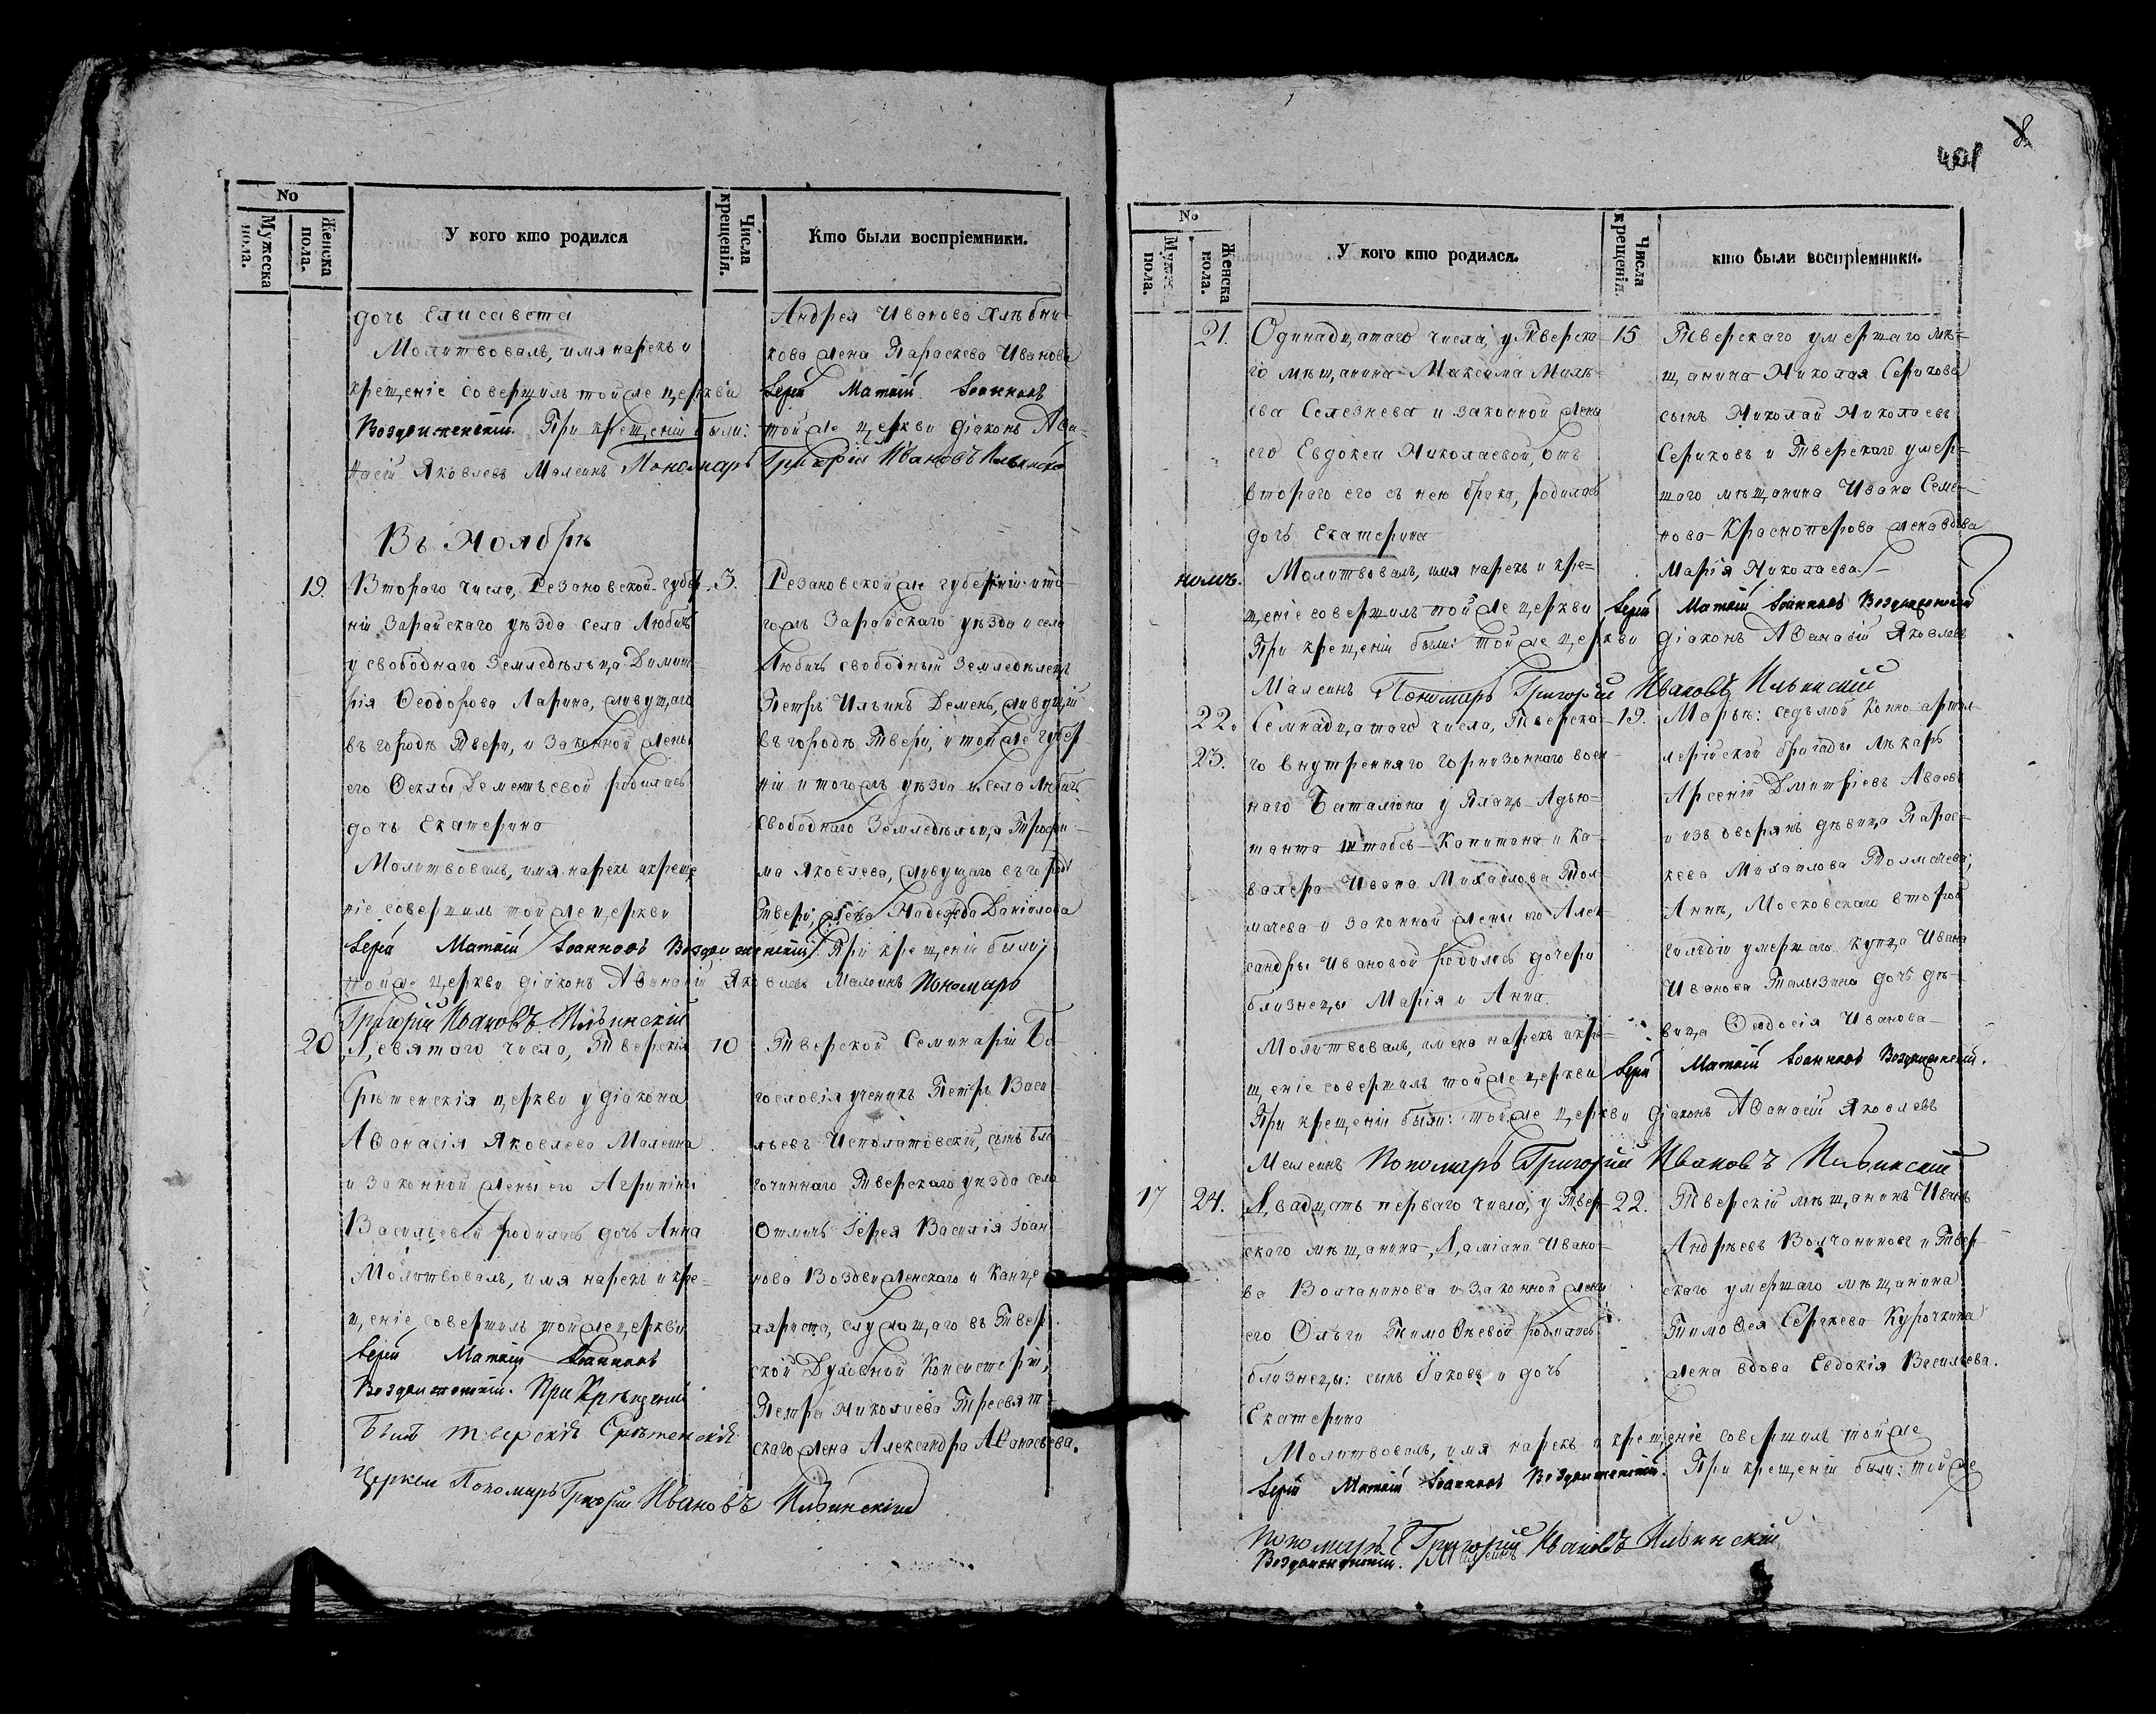 No
Мужеска пола.
Женска пола.
У кого кто родился
Числа крещенія.
Кто были воспріемники.
дочь Елисавета
Молитвовалъ, имя нарекъ и
крещеніе совершилъ тойже церкви
Воздвиженскій. При крещеніи были:
насій Яковлевъ Малеинъ Пономарь
Андрея Иванова Хлѣбни-
кова жена Параскева Иванова
Іерей Матѳій Іоанновъ
тойже церкви діаконъ Аѳа-
Григорій Ивановъ Ильинскій
Въ Ноябрѣ
19.
Втораго числа, Резановской губер-
ніи Зарайскаго уѣзда села Любичъ
у свободнаго Земледѣльца Димит-
рія Ѳеодорова Ларина, живущаго
въ городѣ Твери, и законной жены
его Ѳеклы Дементьевой родилась
дочь Екатерина
Молитвовалъ, имя нарекъ и креще
ніе совершилъ тойже церкви
Іерей Матѳій Іоанновъ Воздвиженскій. При крещеніи были:
тойже церкви діаконъ Аѳанасій Яковлевъ Малеинъ Пономарь
Григорій Ивановъ Ильинскій
3.
Резановской же губерніи и то-
гожъ Зарайскаго уѣзда и села
Любичъ свободный Земледѣлецъ
Петръ Ильинъ Деменъ, живущій
въ городѣ Твери, и тойже губер-
ніи и тогожъ уѣзда и села Любичъ
свободнаго Земледѣльца Трофи-
ма Яковлева, живущаго въ городѣ
Твери, жена Надежда Даніилова
20
Девятаго числа, Тверскія
Срѣтенскія церкви у діакона
Аѳанасія Яковлева Малеина
и законной жены его Агрипины
Васильевой родилась дочь Анна
Молитвовалъ, имя нарекъ и кре-
щеніе совершилъ тойже церкви
Іерей Матѳій Іоанновъ
Воздвиженскій. При Крѣщеніи
былъ тверскія Срѣтенскія
Церкви Пономарь Григорій Ивановъ Ильинскій
10
Тверской Семинаріи Бо-
гословія ученикъ Петръ Васи-
льевъ Исполатовскій, сынъ Бла-
гочиннаго Тверскаго уѣзда села
Отмичъ Іерея Василія Іоан-
нова Воздвиженскаго и Канце-
ляриста, служащаго въ Твер-
ской Духовной Консисторіи,
Петра Николаева Тресвят-
скаго жена Александра Аѳанасьева.
401
8
No
Мужес
пола.
Женска пола.
У кого кто родился.
Числа крещенія.
кто были воспріемники.
21.
Одинадцатаго числа, у Тверска-
го мѣщанина Максима Михѣ-
ева Селезнева и законной жены
его Евдокеи Николаевой, отъ
втораго его съ нею брака, родилась
дочь Екатерина
Молитвовалъ, имя нарекъ и кре-
щеніе совершилъ тойже церкви Іерей Матѳій Іоанновъ Воздвиженскій
При крещеніи были: тойже церкви діаконъ Аѳанасій Яковлевъ
Малеинъ Пономарь Григорій Ивановъ Ильинскій
15
Тверскаго умершаго мѣ-
щанина Николая Серикова
сынъ Николай Николаевъ
Сериковъ и Тверскаго умер-
шаго мѣщанина Ивана Семе-
нова Красноперова жена вдова
Марія Николаева.
22.
23.
Семнадцатаго числа, Тверска-
го внутренняго гарнизоннаго воен-
наго Баталіона у Плацъ-Адъю-
танта штабсъ-Капитана и Ка-
валера Ивана Михаилова Тол-
мачева и законной жены его Алек-
сандры Ивановой родились дочери
близнецы Марія и Анна.
Молитвовалъ, имена нарекъ и кре-
щеніе совершилъ тойже церкви Іерей Матѳій Іоанновъ Воздвиженскій.
При крещеніи были: тойже церкви діаконъ Аѳанасій Яковлевъ
Малеинъ Пономарь Григорій Ивановъ Ильинскій
19.
Марьѣ: седьмой конно-артил-
лерійской бригады лѣкарь
Арсеній Дмитріевъ Аваевъ
и изъ дворянъ дѣвица Парас-
кева Михаилова Толмачева;
Аннѣ, Московскаго второй
гильдіи умершаго купца Ивана
Иванова Талызина дочь дѣ-
вица Ѳеодосія Иванова
17
24.
Двадцать перваго числа, у Твер-
скаго мѣщанина, Даміана Ивано-
ва Волчанинова и законной жены
его Ольги Тимоѳеевой родились
близнецы: сынъ Іаковъ и дочь
Екатерина
Молитвовалъ, имя нарекъ и крещеніе совершилъ тойже
Іерей Матѳій Іоанновъ Воздвиженскій. При крещеніи были: тойже
Пономарь Григорій Ивановъ Ильинскій
Воздвиженскій. Малеинъ
22.
Тверскій мѣщанинъ Иванъ
Андреевъ Волчаниновъ и Твер-
скаго умершаго мѣщанина
Тимоѳея Сергеева Курочкина
жена вдова Евдокія Васильева.